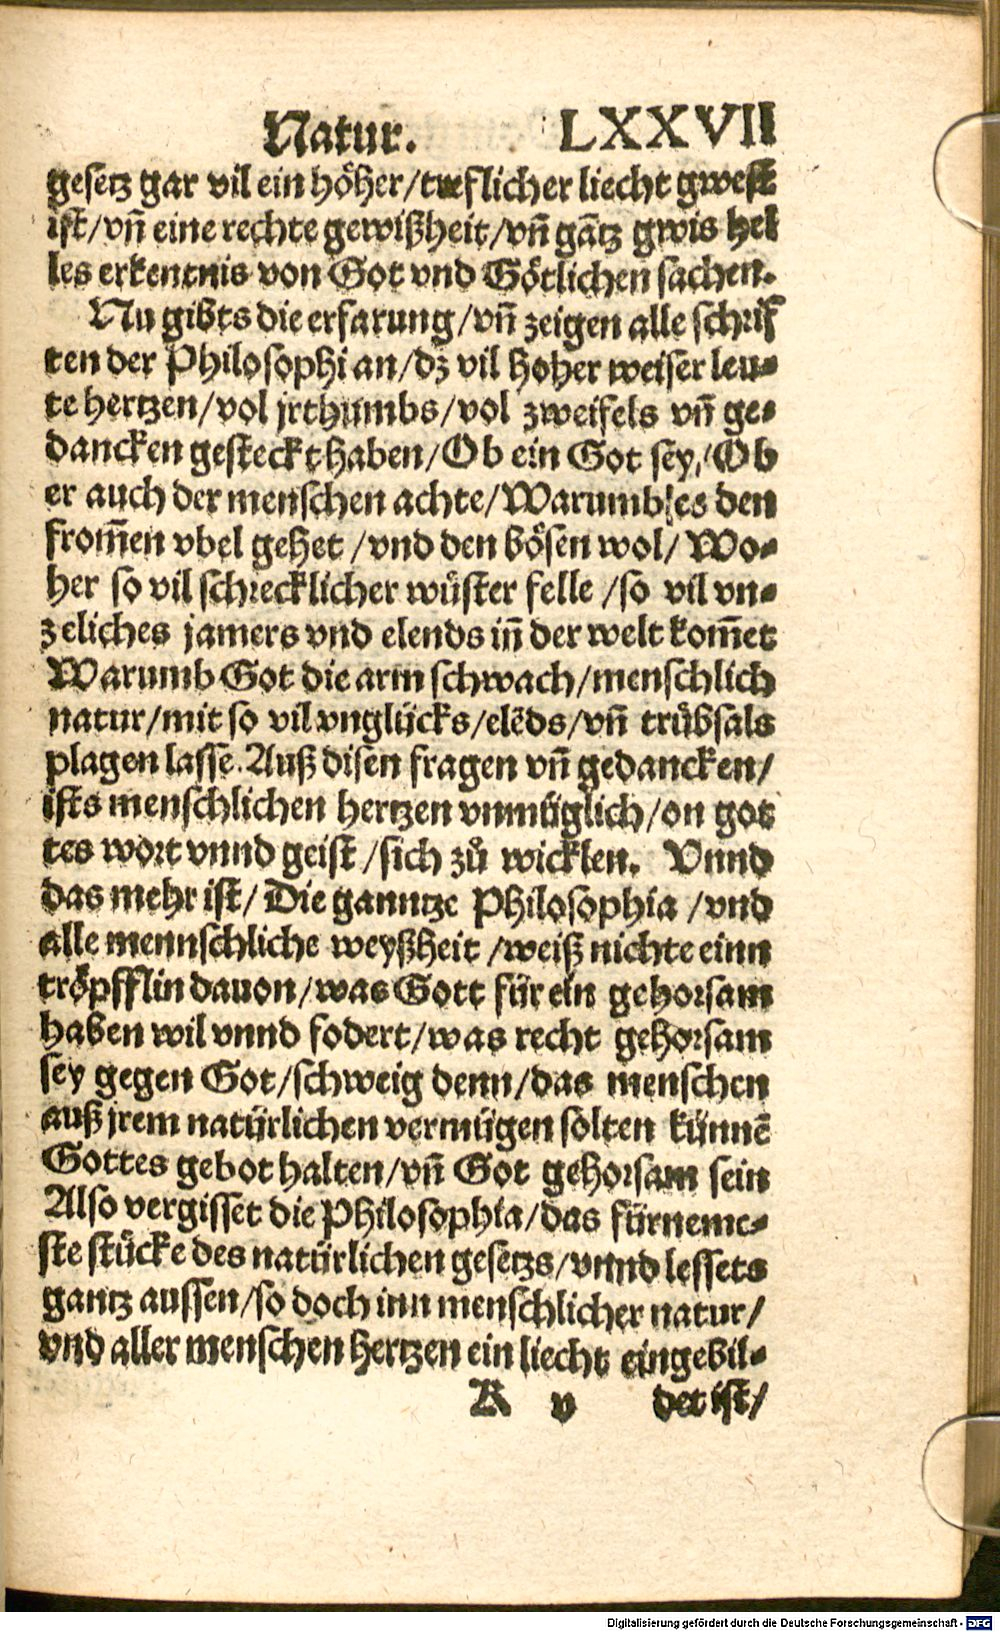 Natur. LXXVII
gesetz gar vil ein höher/treflicher liecht gwest
ist/vñ eine rechte gewißheit/vñ gãtz gwis hel
les erkentnis von Got vnd Götlichen sachen.
Nu gibts die erfarung/vñ zeigen alle schrif
ten der Philosophi an/dz vil hoher weiser leu-
te hertzen/vol jrthumbs/vol zweifels vñ ge-
dancken gesteckt haben/Ob ein Got sey/Ob
er auch der menschen achte/Warumb es den
from̃en vbel gehet/vnd den bösen wol/Wo-
her so vil schrecklicher wüster felle/so vil vn-
zeliches jamers vnd elends iñ der welt kom̃et
Warumb Got die arm schwach/menschlich
natur/mit so vil vnglücks/elẽds/vñ trübsals
plagen lasse. Auß disen fragen vñ gedancken/
ists menschlichen hertzen vnmüglich/on got
tes wort vnnd geist/sich zů wicklen. Vnnd
das mehr ist/Die ganntze Philosophia/vnd
alle mennschliche weyßheit/weiß nichte einn
tröpfflin dauon/was Gott für ein gehorsam
haben wil vnnd fodert/was recht gehorsam
sey gegen Got/schweig denn/das menschen
auß jrem natürlichen vermügen solten künnẽ
Gottes gebot halten/vñ Got gehorsam sein
Also vergisset die Philosophia/das fürneme-
ste stücke des natürlichen gesetzs/vnnd lessets
gantz aussen/so doch inn menschlicher natur/
vnd aller menschen hertzen ein liecht eingebil-
K v det ist/
Digitalisierung gefördert durch die Deutsche Forschungsgemeinschaft - DFG